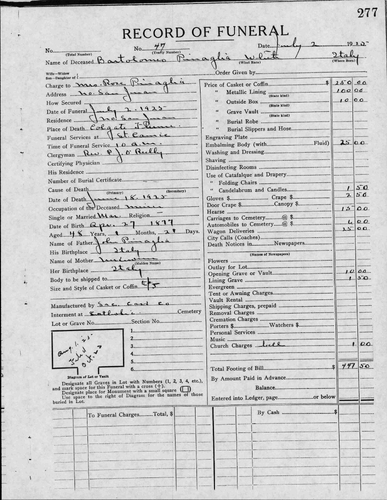 277
RECORD OF FUNERAL
No. No. 47 Date July 2 1925
(Total Number) (Yearly Number)
Name of Deceased Bartolomeo White Italy
(What Race) (Where Born)
Order Given by
Charge to Mrs. Rose
Address No. San Juan
How Secured
Date of Funeral July 2, 1925
Residence No San Juan
Place of Death
Funeral Services at St Canice
Time of Funeral Service 10 a.m.
Clergyman Rev. P. J. O'Reilly
Certifying Physician
His Residence
Number of Burial Certificate
Cause of Death
(Primary) (Secondary)
Date of Death June 1925
Occupation of the Deceased Miner
Single or Married Mar. Religion
Date of Birth Apr. 27
Aged Years, Months, Days
Name of Father John
His Birthplace Italy
Name of Mother
(Maiden Name)
Her Birthplace Italy
Body to be shipped to
Size and Style of Casket or Coffin
Manufactured by Sac. Cask Co
Interment at Catholic Cemetery
Lot or Grave No. Section No.
1.
2.
3.
4.
5.
6.
Diagram of Lot or Vault
Designate all Graves in Lot with Numbers (1, 2, 3, 4, etc.),
and mark space for this Funeral with a cross (+).
Designate place for Monument with a small square
Use space to right of Diagram for the names of those
buried in Lot.
Price of Casket or Coffin $ 250 00
" Metallic Lining 100 00
(State Kind)
" Outside Box 10 00
(State Kind)
" Grave Vault
(State Kind)
" Burial Robe
(State Kind)
" Burial Slippers and Hose
Engraving Plate
Embalming Body (with Fluid) 25 00
Washing and Dressing
Shaving
Disinfecting Rooms
Use of Catafalque and Drapery
" Folding Chairs
" Candelabrum and Candles 1 50
Gloves $ Crape $ 2 50
Door Crape $ Canopy $
Hearse
Carriages to Cemetery @ $
Automobiles to Cemetery @ $
Wagon Deliveries
City Calls (Coaches)
Death Notices in Newspapers
(Names of Newspapers)
Flowers
Outlay for Lot
Opening Grave or Vault 10 00
Lining Grave 1 50
Evergreen
Tent or Awning Charges
Vault Rental
Shipping Charges, prepaid
Removal Charges
Cremation Charges
Porters $ Watchers $
Personal Services
Music
Church Charges bell 1 00
Total Footing of Bill $ 447 50
By Amount Paid in Advance
Balance
Entered into Ledger, page or below
To Funeral Charges Total, $
By Cash $